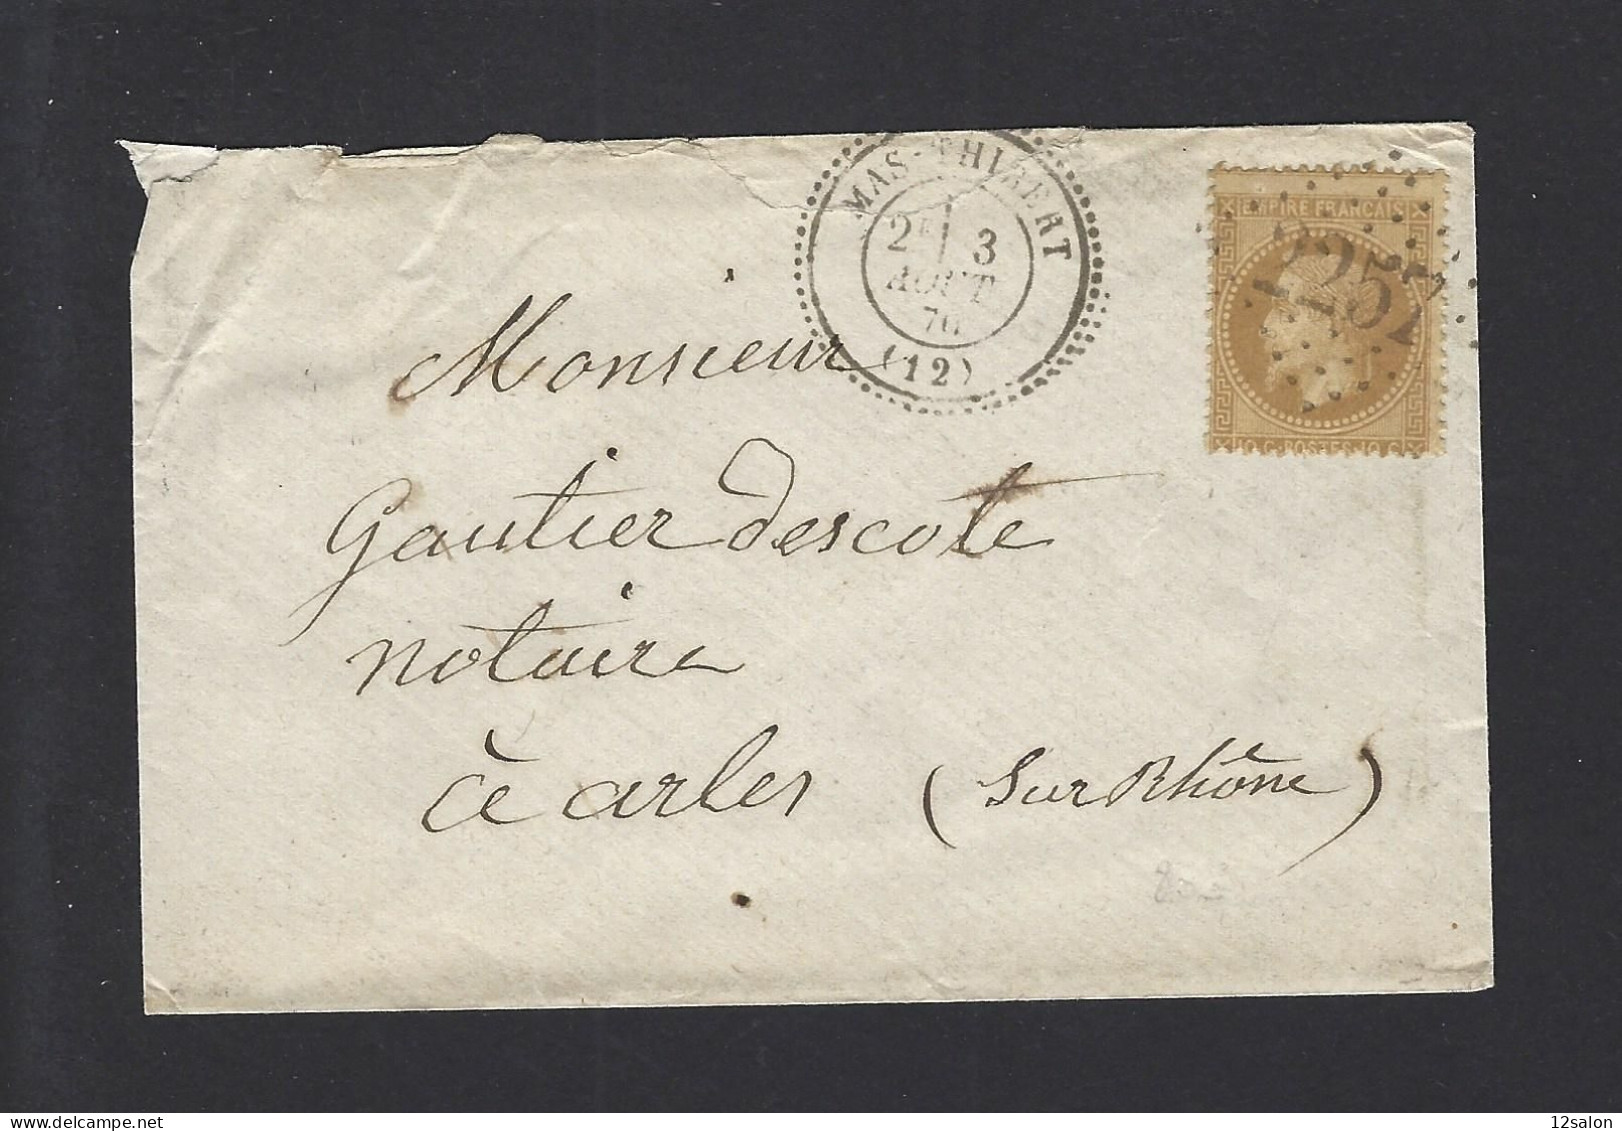 MAS-THIBERT
2E 3
AOUT
70
(12)
EMPIRE FRANÇAIS
2257
10 C. POSTES. 10 C.
Monsieur
Gautier descote
notaire
à arles (Sur Rhône)
https://www.delcampe.net
12salon